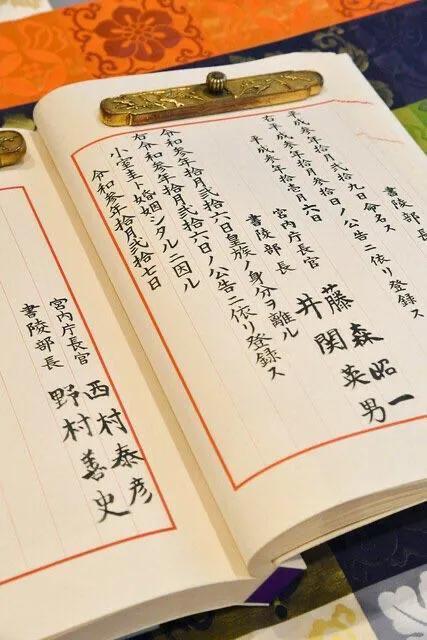 書陵部長
平成参年拾月弐拾九日命名ス
右平成参年拾月参拾日ノ公告ニ依リ登録ス
平成参年拾壱月六日
宮内庁長官 藤森昭一
書陵部長 井関英男
令和参年拾月弐拾六日皇族ノ身分ヲ離ル
右令和参年拾月弐拾六日ノ公告ニ依リ登録ス
小室圭ト婚姻シタルニ因ル
令和参年拾月弐拾七日
宮内庁長官 西村泰彦
書陵部長 野村善史